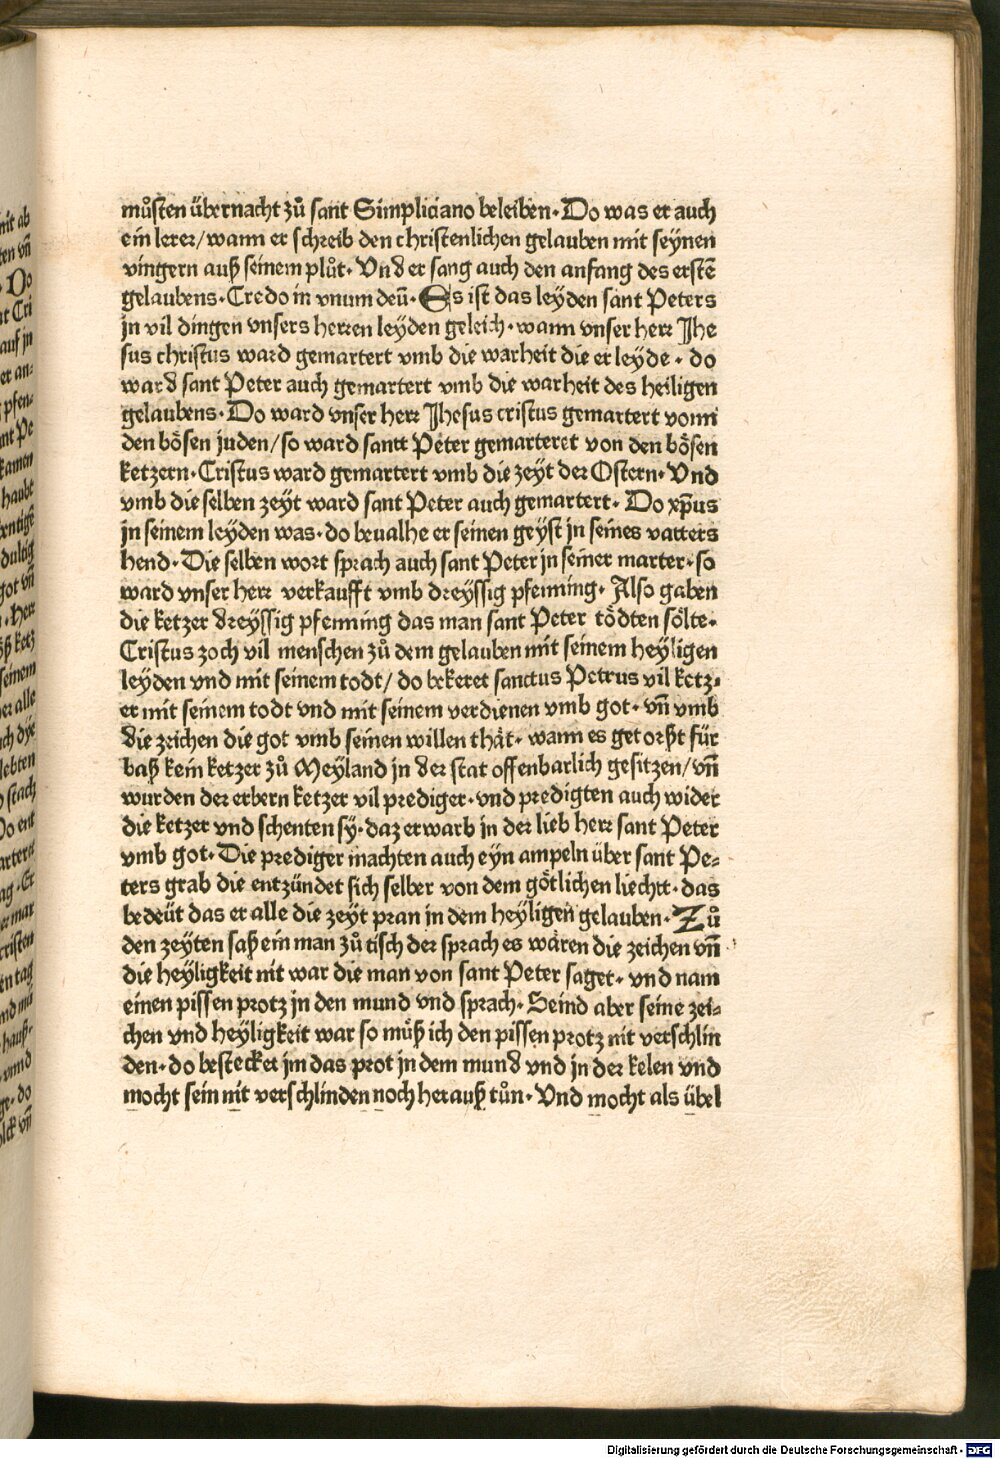 můsten übernacht zů sant Simpliciano beleiben· Do was er auch
ein lerer/ wann er schreib den christenlichen gelauben mit seynen
vingern auß seinem plůt· Vnd er sang auch den anfang des erstē
gelaubens· Credo in vnum deū· Es ist das leyden sant Peters
jn vil dingen vnsers herren leyden geleich· wann vnser herr Jhe
sus christus ward gemartert vmb die warheit die er leyde· do
ward sant Peter auch gemartert vmb die warheit des heiligen
gelaubens· Do ward vnser herr Jhesus cristus gemartert vonn
den bösen juden/ so ward santt Peter gemarteret von den bösen
ketzern· Cristus ward gemartert vmb die zeyt der Ostern· Vnd
vmb die selben zeyt ward sant Peter auch gemartert· Do xp̄us
jn seinem leyden was· do beualhe er seinen geyst jn seines vatters
hend· Die selben wort sprach auch sant Peter jn seiner marter· so
ward vnser herr verkaufft vmb dreyssig pfenning· Also gaben
die ketzer dreyssig pfenning das man sant Peter tödten sölte·
Cristus zoch vil menschen zů dem gelauben mit seinem heyligen
leyden vnd mit seinem todt/ do bekeret sanctus Petrus vil ketz-
er mit seinem todt vnd mit seinem verdienen vmb got· vñ vmb
die zeichen die got vmb seinen willen thät· wann es getorßt für
baß kein ketzer zů Meyland jn der stat offenbarlich gesitzen/ vñ
wurden der erbern ketzer vil prediger· vnd predigten auch wider
die ketzer vnd schenten sy· daz erwarb in der lieb herr sant Peter
vmb got· Die prediger machten auch eyn ampeln über sant Pe-
ters grab die entzündet sich selber von dem götlichen liechtt· das
bedeüt das er alle die zeyt pran in dem heyligen gelauben· Zů
den zeyten saß ein man zů tisch der sprach es wären die zeichen vñ
die heyligkeit nit war die man von sant Peter saget· vnd nam
einen pissen protz jn den mund vnd sprach· Seind aber seine zei-
chen vnd heyligkeit war so můß ich den pissen protz nit verschlin
den· do bestecket jm das prot jn dem mund vnd jn der kelen vnd
mocht sein nit verschlinden noch herauß tůn· Vnd mocht als übel
Digitalisierung gefördert durch die Deutsche Forschungsgemeinschaft - DFG